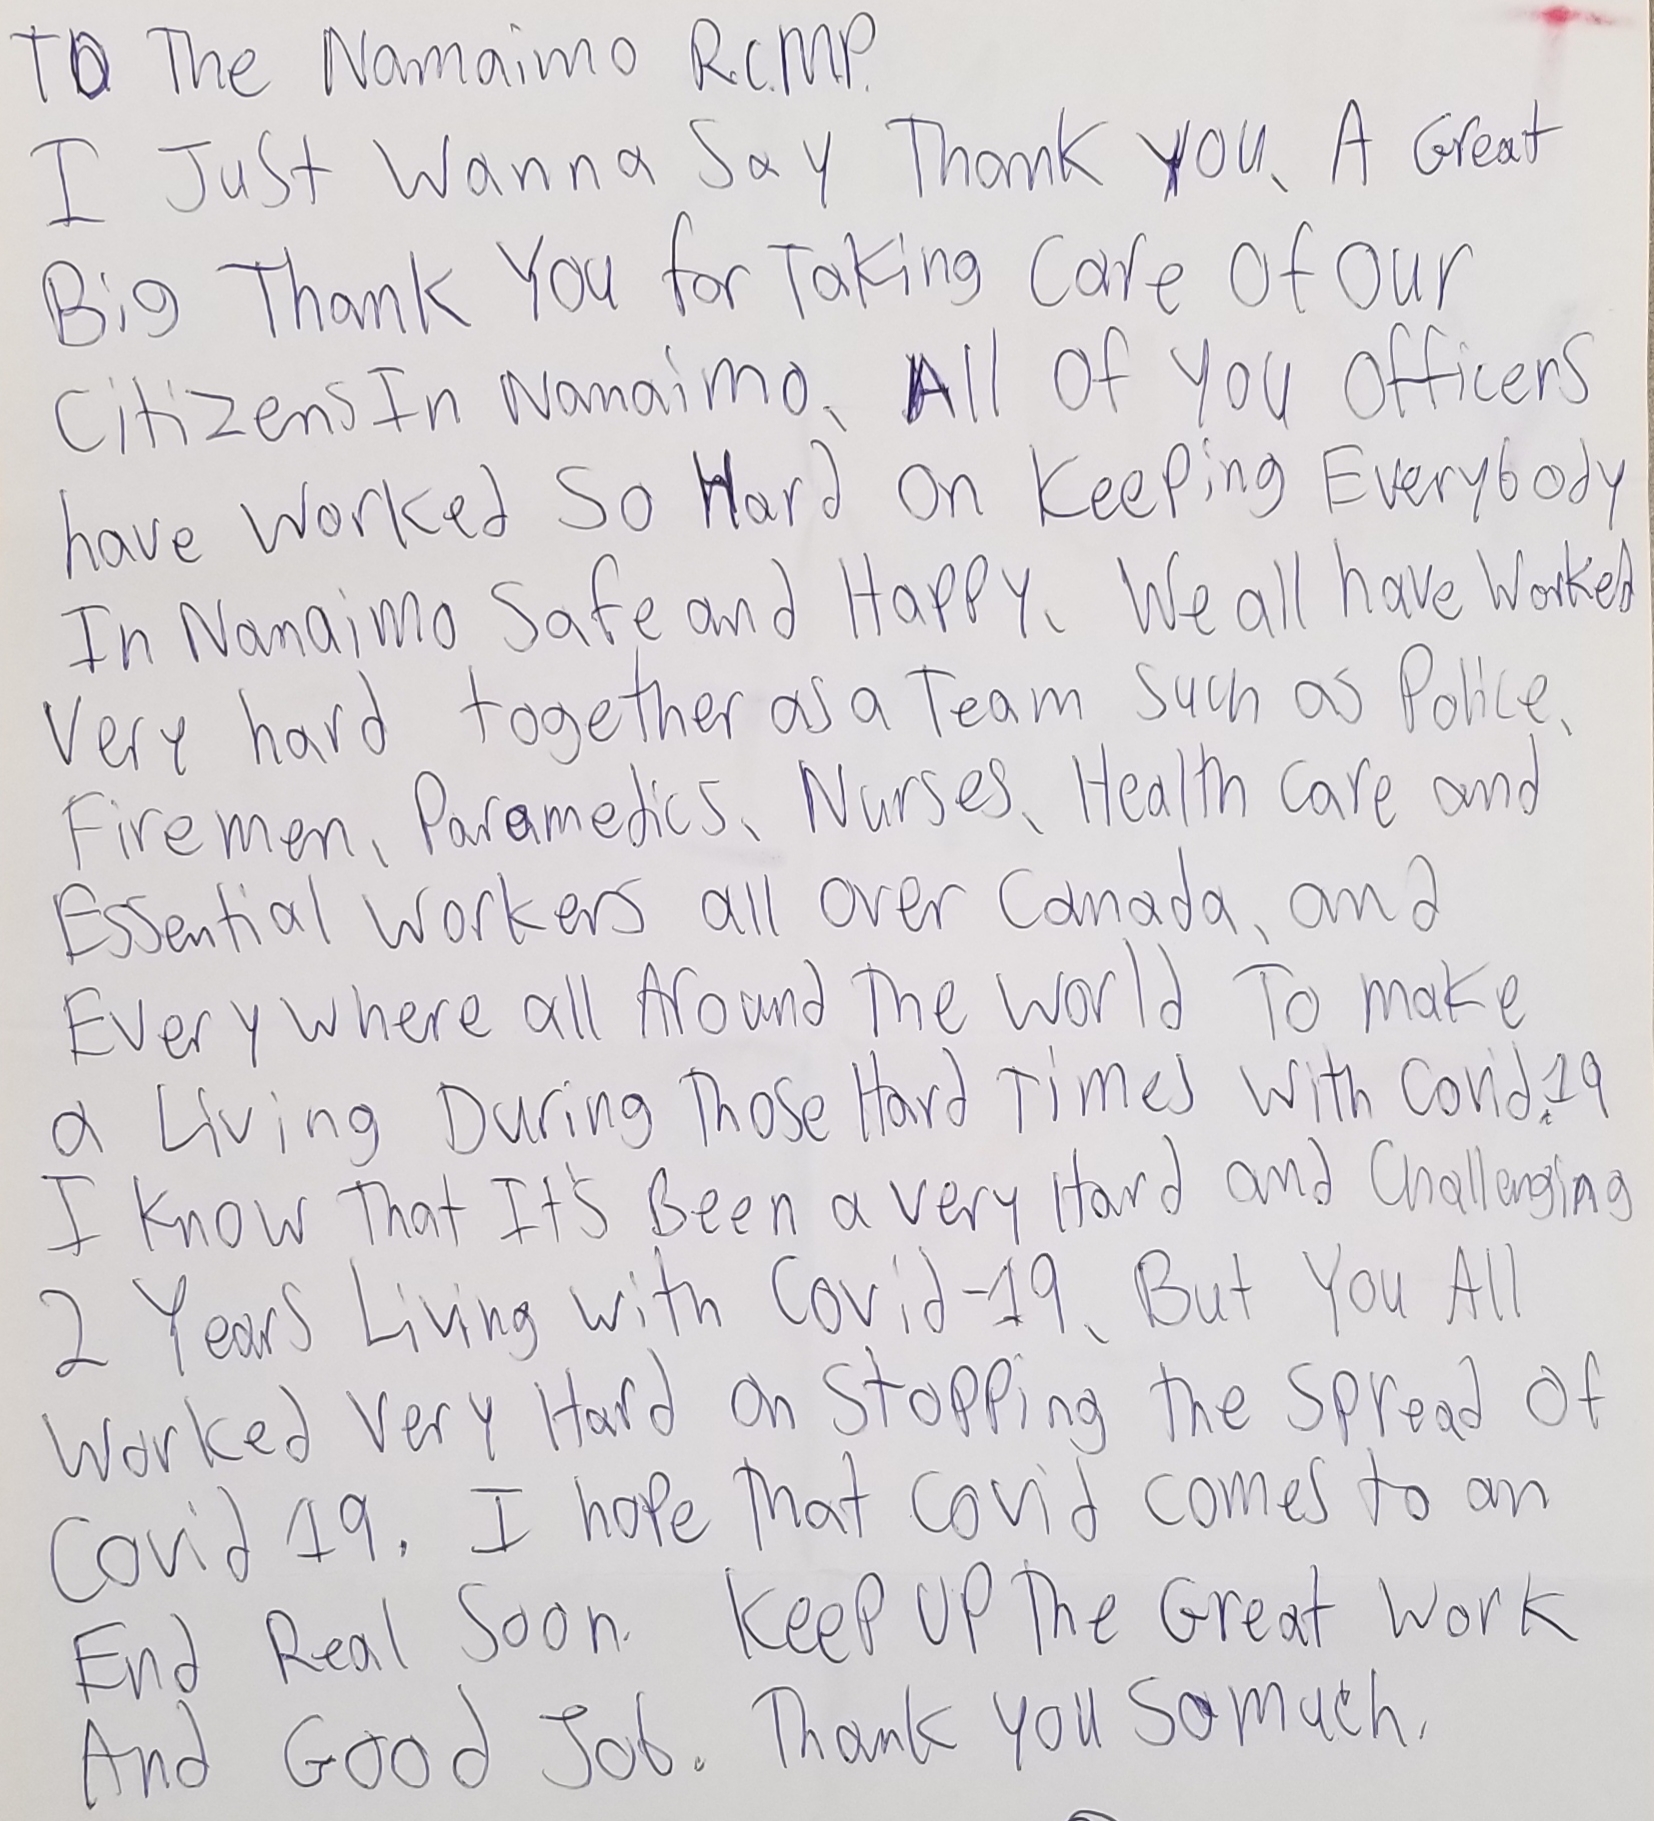 TO The Nanaimo R.C.M.P.
I Just Wanna Say Thank you, A Great
Big Thank You for Taking Care Of Our
Citizens In Nanaimo, All Of You Officers
have Worked So Hard On Keeping Everybody
In Nanaimo Safe and Happy, We all have Worked
Very hard together as a Team Such as Police,
Firemen, Paramedics, Nurses, Health Care and
Essential Workers all over Canada, and
Everywhere all Around The World To make
a Living During Those Hard Times With Covid.19
I Know That It's Been a very Hard and Challenging
2 Years Living with Covid-19, But You All
Worked Very Hard On Stopping The Spread Of
Covid 19. I hope That Covid comes to an
End Real Soon. Keep UP The Great Work
And Good Job. Thank you So much.